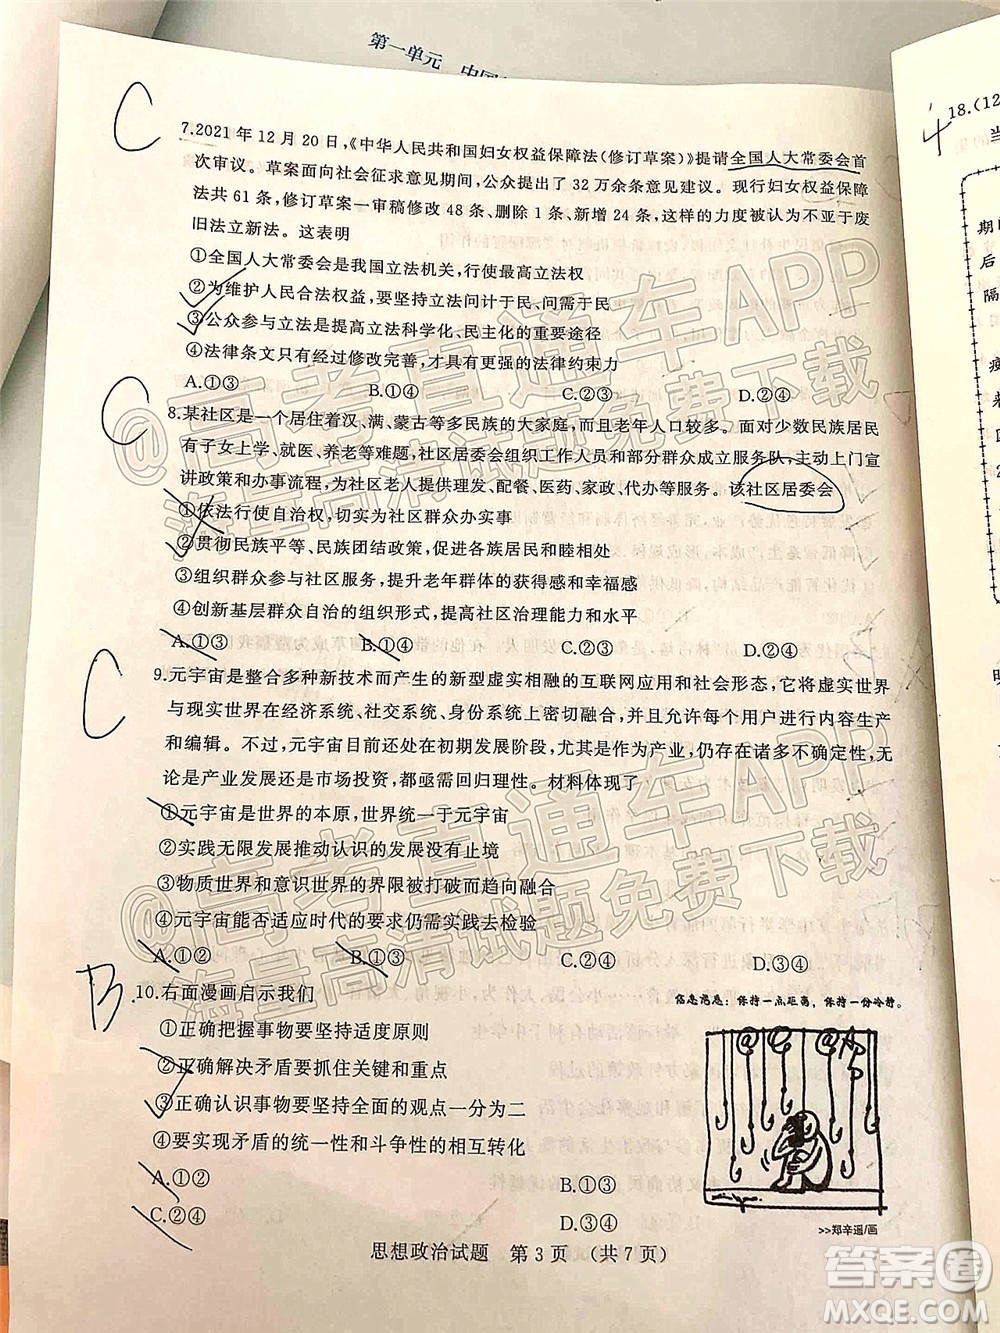 第一单元 中国
C
7.2021年12月20日,《中华人民共和国妇女权益保障法(修订草案)》提请全国人大常委会首
次审议。草案面向社会征求意见期间,公众提出了32万余条意见建议。现行妇女权益保障
法共61条,修订草案一审稿修改48条、删除1条、新增24条,这样的力度被认为不亚于废
旧法立新法。这表明
①全国人大常委会是我国立法机关,行使最高立法权
②为维护人民合法权益,要坚持立法问计于民、问需于民
③公众参与立法是提高立法科学化、民主化的重要途径
④法律条文只有经过修改完善,才具有更强的法律约束力
A.①③ B.①④ C.②③ D.②④
C
8.某社区是一个居住着汉、满、蒙古等多民族的大家庭,而且老年人口较多。面对少数民族居民
有子女上学、就医、养老等难题,社区居委会组织工作人员和部分群众成立服务队,主动上门宣
讲政策和办事流程,为社区老人提供理发、配餐、医药、家政、代办等服务。该社区居委会
①依法行使自治权,切实为社区群众办实事
②贯彻民族平等、民族团结政策,促进各族居民和睦相处
③组织群众参与社区服务,提升老年群体的获得感和幸福感
④创新基层群众自治的组织形式,提高社区治理能力和水平
A.①③ B.①④ C.②③ D.②④
C
9.元宇宙是整合多种新技术而产生的新型虚实相融的互联网应用和社会形态,它将虚实世界
与现实世界在经济系统、社交系统、身份系统上密切融合,并且允许每个用户进行内容生产
和编辑。不过,元宇宙目前还处在初期发展阶段,尤其是作为产业,仍存在诸多不确定性,无
论是产业发展还是市场投资,都亟需回归理性。材料体现了
①元宇宙是世界的本原,世界统一于元宇宙
②实践无限发展推动认识的发展没有止境
③物质世界和意识世界的界限被打破而趋向融合
④元宇宙能否适应时代的要求仍需实践去检验
A.①② B.①③ C.②④ D.③④
B
10.右面漫画启示我们
信息泡沫:保持一点距离,保持一份冷静。
①正确把握事物要坚持适度原则
②正确解决矛盾要抓住关键和重点
③正确认识事物要坚持全面的观点一分为二
④要实现矛盾的统一性和斗争性的相互转化
A.①② B.①③
C.②④ D.③④
>>郑辛遥/画
思想政治试题 第3页 (共7页)
18.(12
当
期
后
隔
疫
@高考直通车APP
海量高清试题免费下载
@高考直通车APP
海量高清试题免费下载
答案圈
MXQE.COM